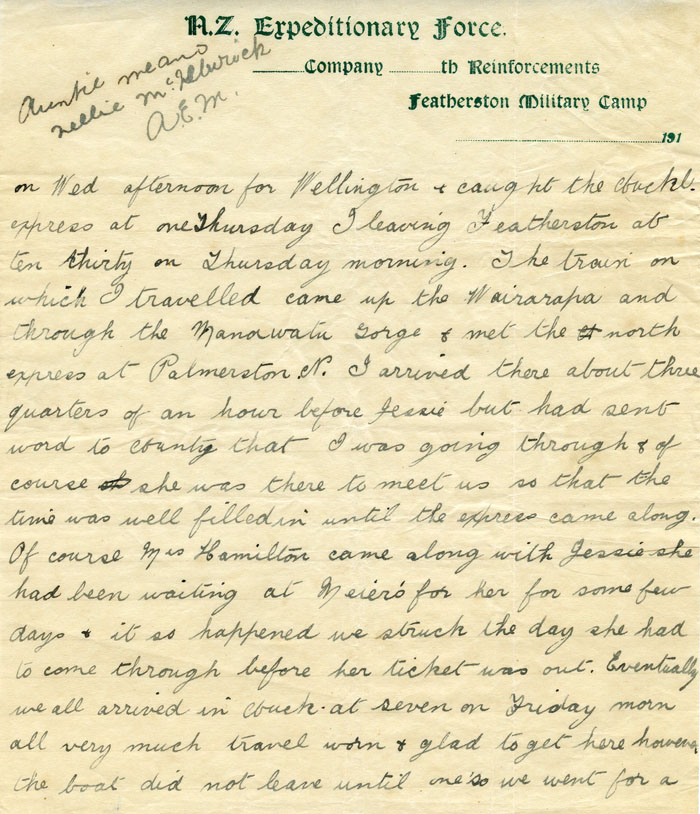 N.Z. Expeditionary Force.
Company th Reinforcements
Featherston Military Camp
191
Auntie means
Nellie
A.E.M.
on Wed afternoon for Wellington & caught the Auckl.
express at one Thursday I leaving Featherston at
ten thirty on Thursday morning. The train on
which I travelled came up the Wairarapa and
through the Manawatu Gorge & met the north
express at Palmerston N. I arrived there about three
quarters of an hour before Jessie but had sent
word to that I was going through & of
course she was there to meet us so that the
time was well filled in until the express came along.
Of course Mrs Hamilton came along with Jessie she
had been waiting at Meier's for her for some few
days & it so happened we struck the day she had
to come through before her ticket was out. Eventually
we all arrived in Auck. at seven on Friday morn
all very much travel worn & glad to get here however
the boat did not leave until one so we went for a